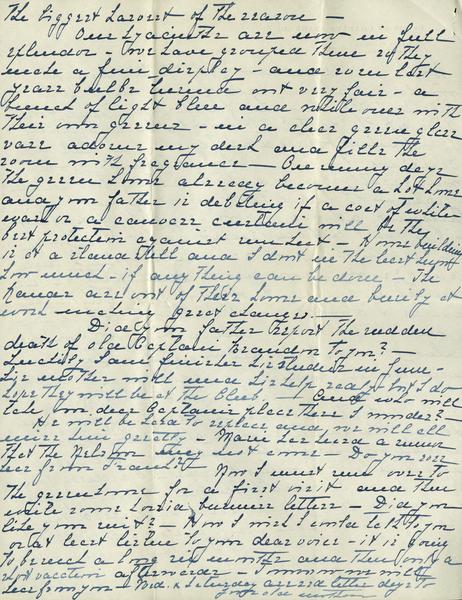 The biggest haul of the season —
Our hyacinths are now in full
splendor — We have grouped them so they
make a fine display — and even last
years bulbs turned out very fair — a
bunch of light blue and white ones with
their own greens — in a clear green glass
vase adorns my desk and fills the
room with fragrance — On sunny days
the green house already becomes a hot house
and your father is debating if a coat of white
or a canvas curtain will be the
best protection against sunheat — Home building
is at a standstill and I dont in the least know
how much — if anything can be done — The
are out of their house and busily at
work making great changes —
Did your father report the sudden
death of old Captain Brandon to you? —
Luckily Sam finishes his studies in June —
his mother will need his help really but I do
hope they will be at the — And who will
take our dear Captains place there I wonder? —
He will be hard to replace and we will all
miss him greatly — Marie has heard a rumor
that the Nelsons may not come — Do you ever
hear from
Now I must run over to
the greenhouse for a first visit and then
write some business letters — Did you
like your suit? — How I wish I could talk to you
or at least listen to your dear voice — it is going
to be such a long six months and then only a
short vacation afterwards
hear from you — Wed. & Saturday are red letter days to
your old mother